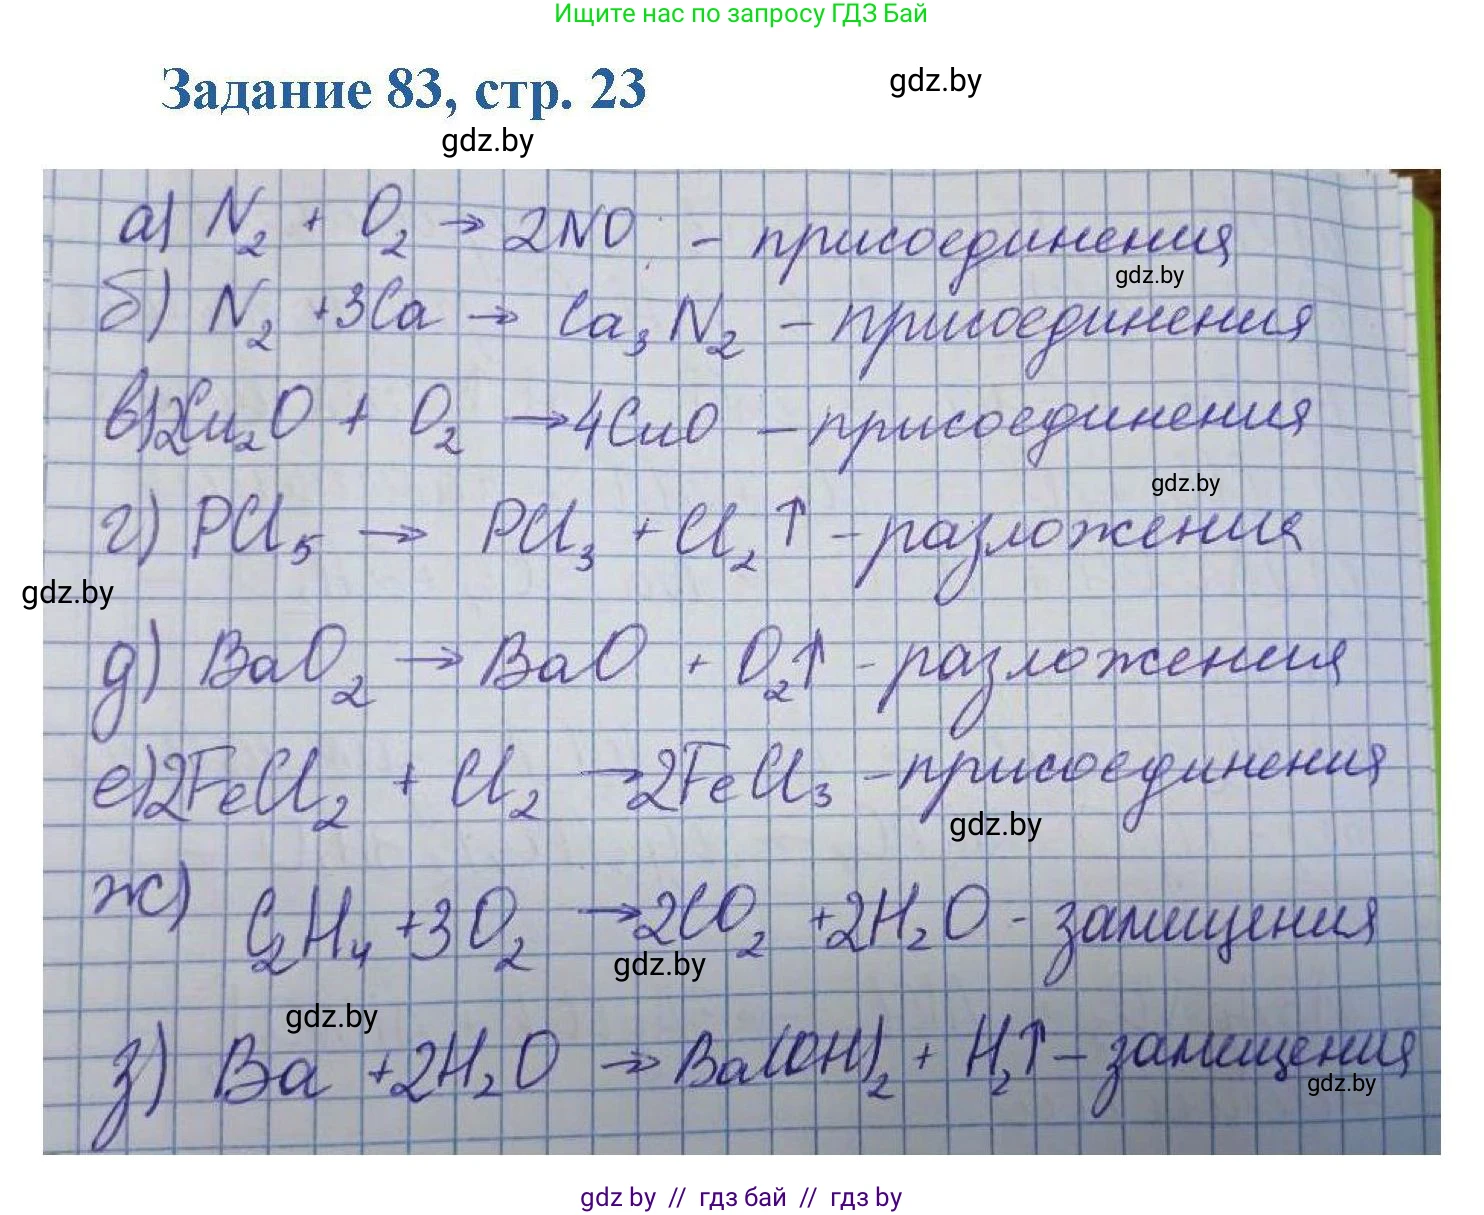 Ищите нас по запросу ГДЗ Бай
Задание 83, стр. 23
gdz.by
gdz.by
а) N₂ + O₂ → 2NO - присоединения
gdz.by
б) N₂ +3Ca → Ca₃N₂ - присоединения
в) 2Cu₂O + O₂ → 4CuO - присоединения
gdz.by
г) PCl₅ → PCl₃ + Cl₂↑ - разложения
gdz.by
д) BaO₂ → BaO + O₂↑ - разложения
е) 2FeCl₂ + Cl₂ → 2FeCl₃ - присоединения
gdz.by
ж) C₂H₄ +3O₂ → 2CO₂ +2H₂O - замещения
gdz.by
gdz.by
з) Ba +2H₂O → Ba(OH)₂ + H₂↑ - замещения
gdz.by
gdz by // гдз бай // гдз by